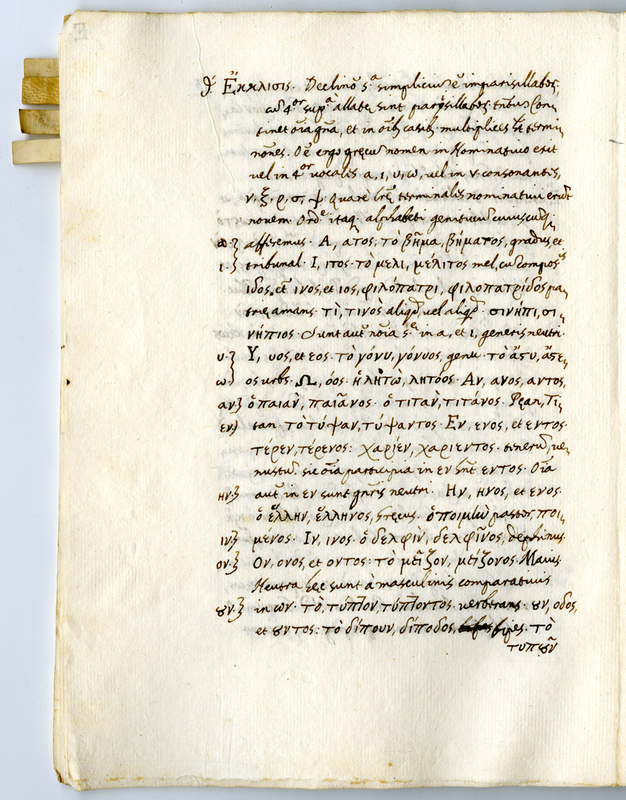 θ' Ἔκκλισις. Declinõ 5ª simplicium ẽ imparisillabos,
cũ 4or supª allatę sint parisillabos tribus Con
tinet oĩa gña, et in oĩb casib multiplices ht termi,
nõnes. Oẽ ergo gręcũ nomen in Nominativo exit
vel in 4or vocalis α, ι, υ, ω, vel in v consonantis,
ν, ξ, ρ, σ, ψ. Quare lrę terminalis nominativi erũt
novem. Ordẽ itaq. alphabeti genitivũ cuiuscũq.
α.} afferemus. Α, ατος, τὸ βῆμα, βήματος, gradus, et
ι.} tribunal. Ι, ιτος. τὸ μέλι, μέλιτος mel, cũ compos
ιδος, et ινος, et ιος, φιλόπατρι, φιλοπάτριδος pa,
trię amans. τὶ, τινὸς aliqd, vel aliqd. σινήπι, σι,
νήπιος. Sunt aut noĩa in a, et ι, generis neutri.
υ.} Υ, υος, et εος. τὸ γόνυ, γόνυος, genu. τὸ ἄστυ, ἄστε,
ω.} ος urbs. Ω, όος. ἡ λητὼ, λητόος. Αν, ανος, αντος,
αν.} ὁ παιὰν, παιᾶνος. ὁ τιτὰν, τιτάνος. Pęan, Ti,
εν.} tan. τὸ τύψαν, τύψαντος. Εν, ενος, et εντος.
τέρεν, τέρενος: χαρίεν, χαρίεντος. tenerũ, ve,
nustũ. sic oĩa participia in εν hnt εντος. Oĩa
ην.} aut in εν sunt gñris neutri. Ην, ηνος, et ενος.
ὁ ἕλλην, ἕλληνος, gręcus. ὁ ποιμὼ pastor ποι,
ιν.} μένος. Ιν, ινος. ὁ δελφὶν, δελφῖνος, delphinus.
ον.} Ον, ονος, et οντος: τὸ μεῖζον, μείζονος. Maius.
Neutra hęc sunt à masculinis comparativis
ȣν.} in ων. τὸ τύπτον, τύπτοντος. verbtrans. ȣν, οδος,
et ȣντος: τὸ δίπουν, δίποδος, bipes. τὸ
τυπȣ͂ν